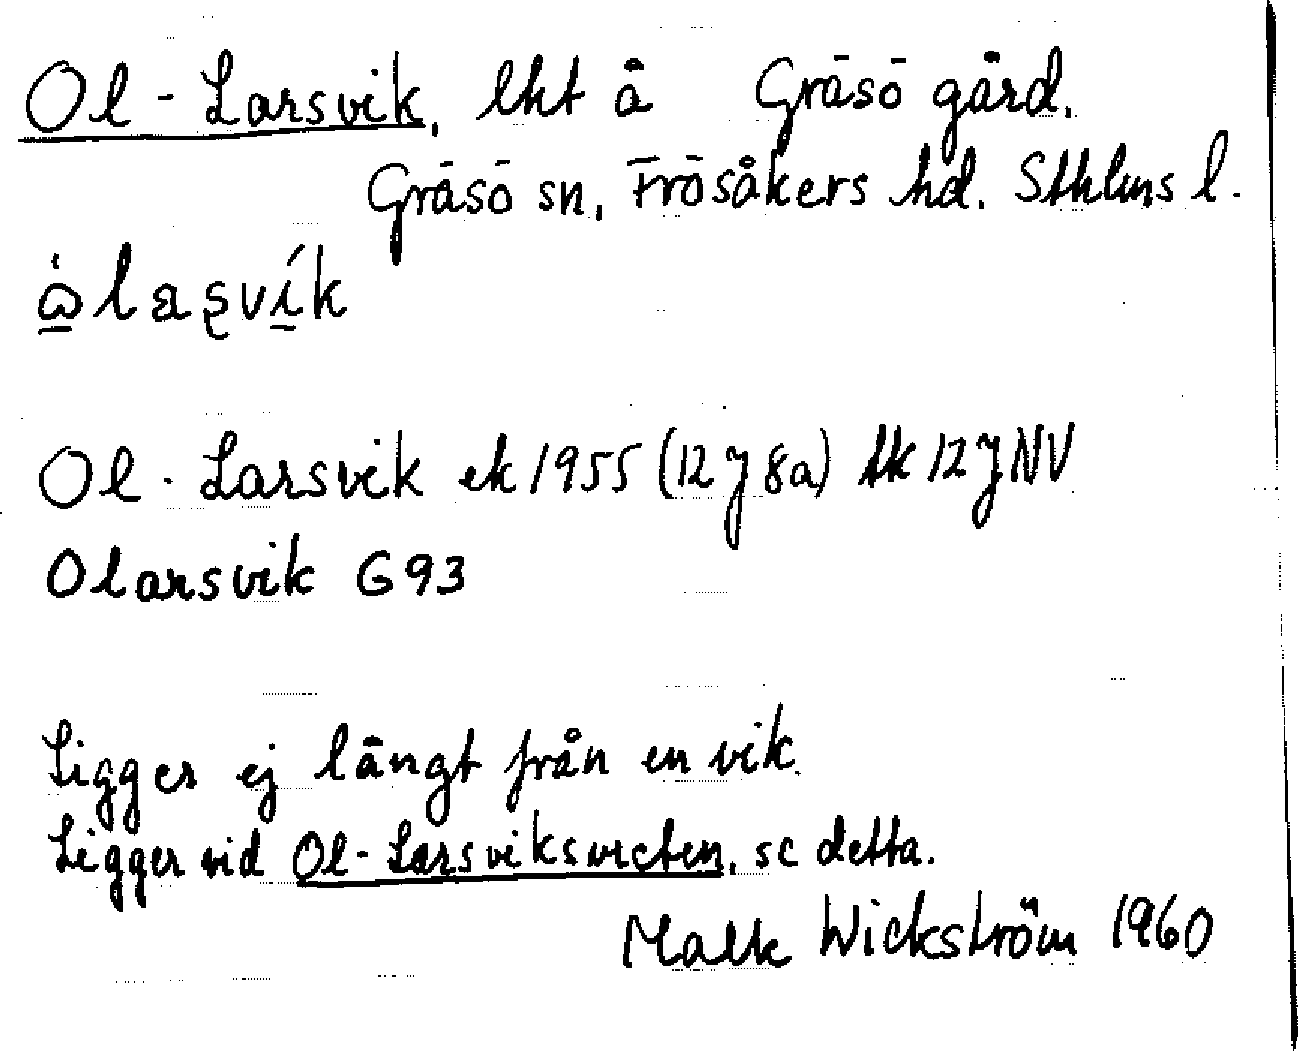 Ol-Larsvik, lht å Gräsö gård.
Gräsö sn, Frösåkers hd. Sthlms l.
Ol-Larsvik ek 1955 (12 J 8a) tk 12 J NV
Olarsvik G93
Ligger ej långt från en vik.
Ligger vid Ol-Larsviksvreten, se detta.
Wickström 1960